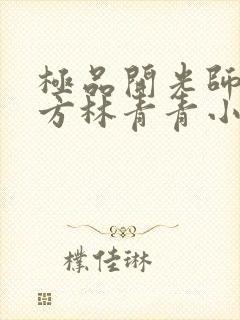 極品開光師
方林青青小
樸佳琳